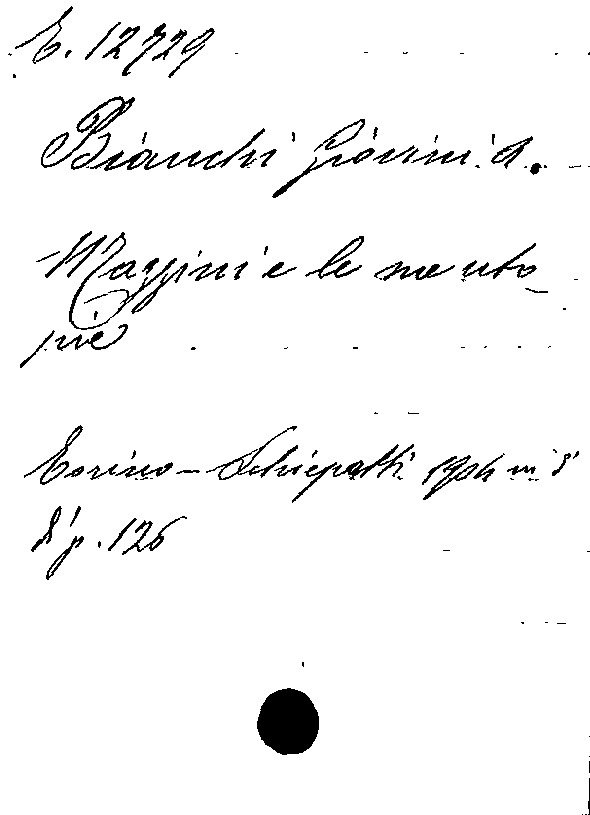 E. 12729
Bianchi Giovini A.
Mazzini e le sue uto
pie
Torino - Schiepatti 1904 in 8°
di p. 126